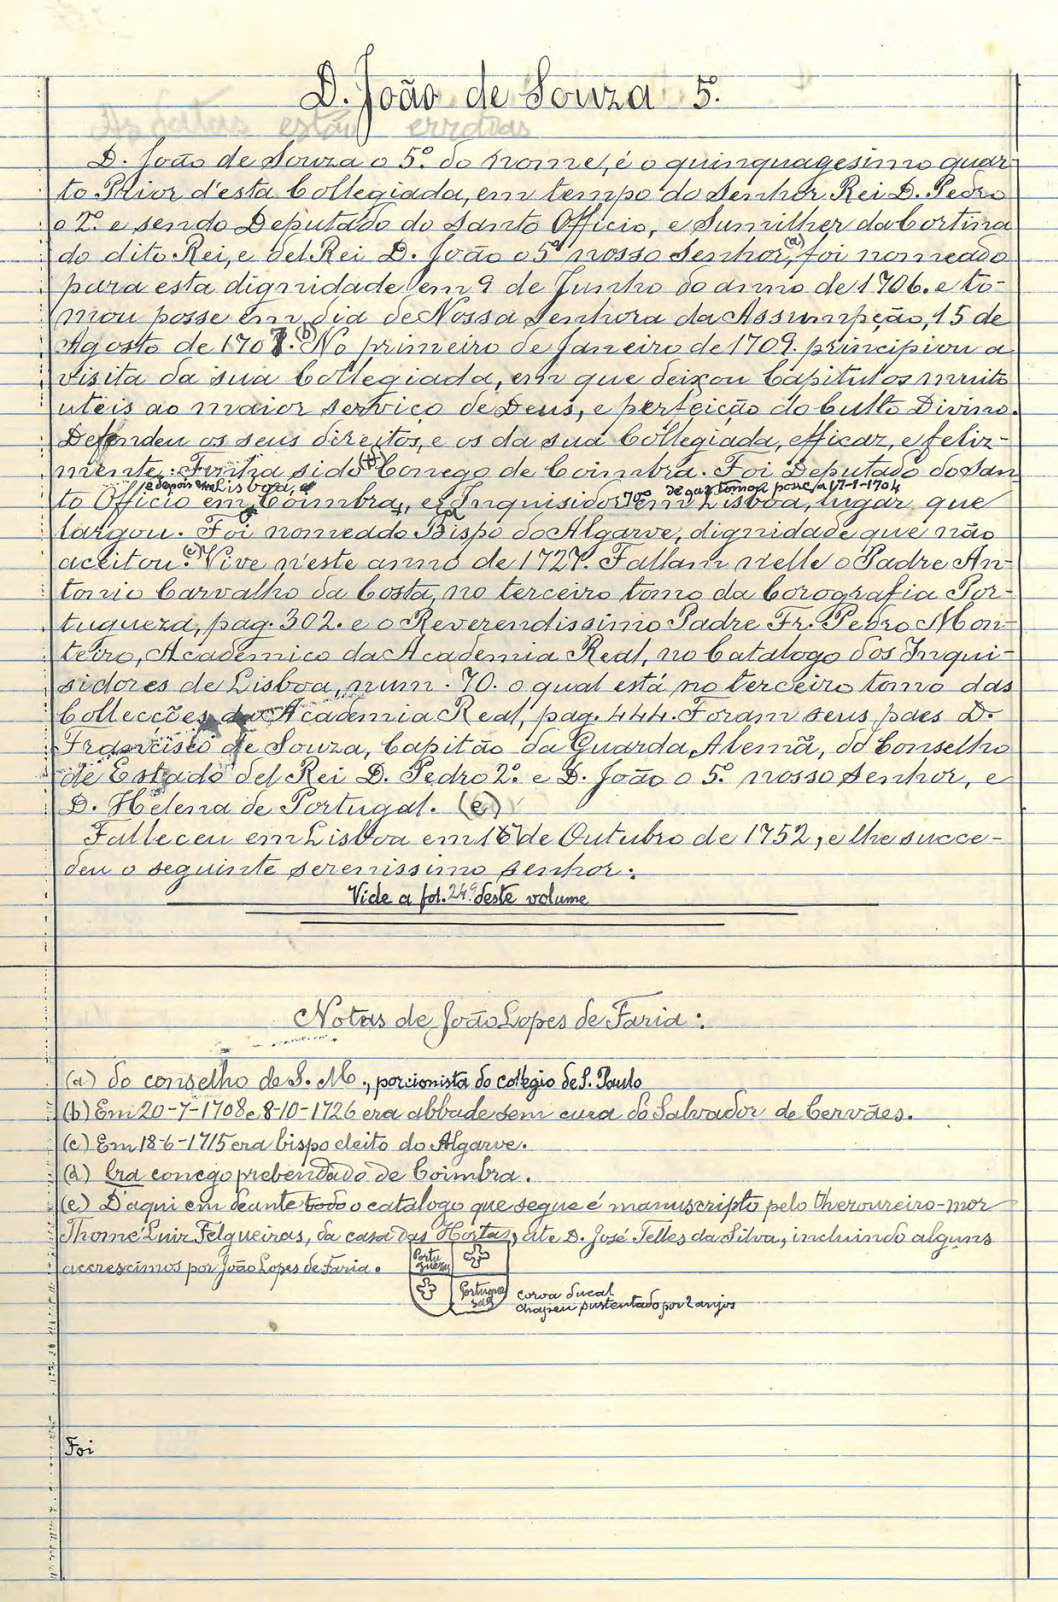 D. João de Souza 5.º
As datas estão erradas
D. João de Souza o 5.º do nome, é o quinquagesimo quar-
to Prior d'esta Collegiada, em tempo do Senhor Rei D. Pedro
o 2.º e sendo Deputado do Santo Officio, e Sumilher da Cortina
do dito Rei, e del Rei D. João o 5.º nosso Senhor, (a) foi nomeado
para esta dignidade em 9 de Junho do anno de 1706. e to-
mou posse em dia de Nossa Senhora da Assumpção, 15 de
Agosto de 1707. (b) No primeiro de Janeiro de 1709. principiou a
visita da sua Collegiada, em que deixou Capitulos muito
uteis ao maior serviço de Deus, e perfeição do Culto Divino.
Defendeu os seus direitos, e os da sua Collegiada, efficaz, e feliz-
mente. Tinha sido (d) Conego de Coimbra. Foi Deputado do San-
e depois em Lisboa, e de q̃ tomou posse a 17-1-1704
to Officio em Coimbra, e Inquisidor 70º em Lisboa, lugar que
largou. Foi nomeado Bispo do Algarve, dignidade que não
aceitou. (c) Vive n'este anno de 1727. Fallam nelle o Padre An-
tonio Carvalho da Costa, no terceiro tomo da Corografia Por-
tugueza, pag. 302. e o Reverendissimo Padre Fr. Pedro Mon-
teiro, Académico da Academia Real, no Catalogo dos Inqui-
sidores de Lisboa, num. 70. o qual está no terceiro tomo das
Collecções da Academia Real, pag. 444. Foram seus paes D.
Francisco de Souza, Capitão da Guarda Alemã, do Conselho
de Estado del Rei D. Pedro 2.º e D. João o 5.º nosso Senhor, e
D. Helena de Portugal. (e)
Falleceu em Lisboa em 17 de Outubro de 1752, e lhe succe-
deu o seguinte serenissimo senhor:
Vide a fol. 249 deste volume
Notas de João Lopes de Faria:
(a) do conselho de S. M., porcionista do colégio de S. Paulo
(b) Em 20-7-1708 e 8-10-1726 era abbade sem cura do Salvador de Cervães.
(c) Em 18-6-1715 era bispo eleito do Algarve.
(d) Era conego prebendado de Coimbra.
(e) D'aqui em deante todo o catalogo que segue é manuscripto pelo theroureiro-mor
Thomé Luiz Felgueiras, da casa das Hortas, até D. José Telles da Silva, incluindo alguns
accrescimos por João Lopes de Faria.
Portu
guezas
Portugue
zas
coroa ducal
chapeu sustentado por 2 anjos
Foi